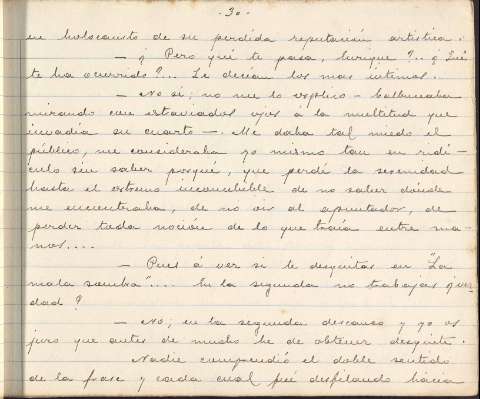 - 30 -
en holocausto de su perdida reputación artística.
— ¿ Pero qué te pasa, Enrique ?.. ¿ Qué
te ha ocurrido ?... Le decían los mas íntimos.
— No sé; no me lo esplico — balbuceaba
mirando con estraviados ojos á la multitud que
invadía su cuarto —. Me daba tal miedo el
público, me consideraba yo mismo tan en ridí-
culo sin saber porqué, que perdí la serenidad
hasta el estremo inconcebible de no saber dónde
me encontraba, de no oir al apuntador, de
perder toda noción de lo que traía entre ma-
nos....
— Pues á ver si te desquitas en "La
mala sombra".... En la segunda no trabajas ¿ver-
dad ?
— No; en la segunda descanso y yo os
juro que antes de mucho he de obtener desquite.
Nadie comprendió el doble sentido
de la frase y cada cual fué desfilando hacia